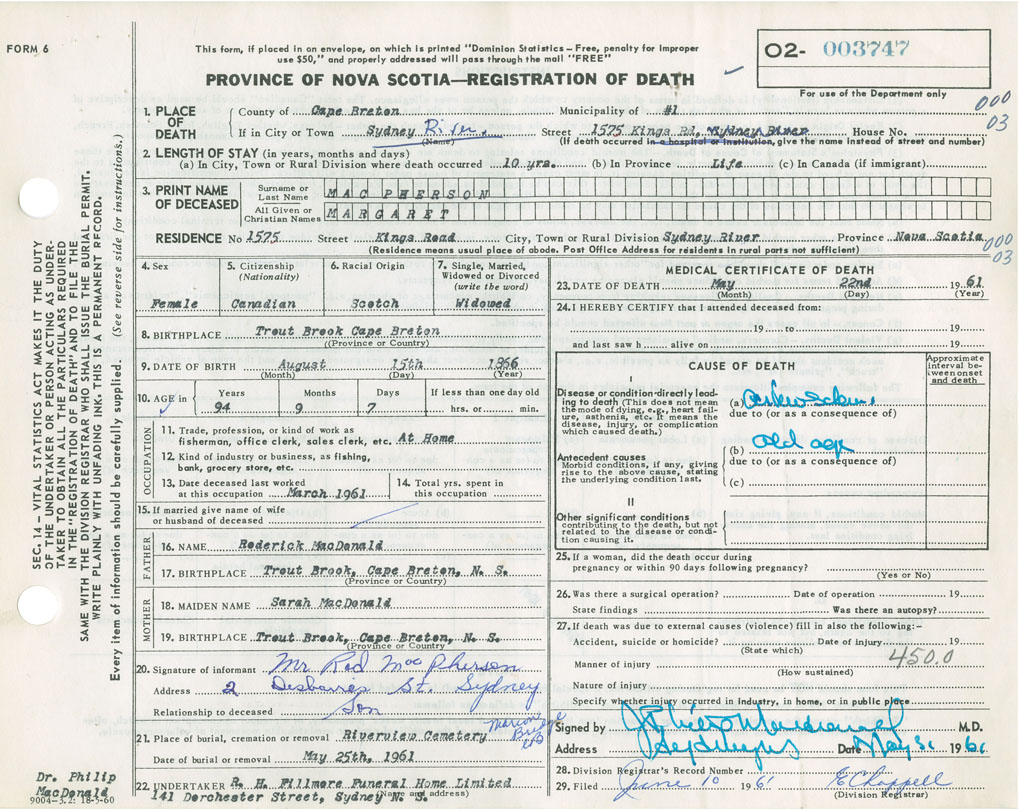 FORM 6
This form, if placed in an envelope, on which is printed "Dominion Statistics – Free, penalty for improper
use $50," and properly addressed will pass through the mail "FREE"
PROVINCE OF NOVA SCOTIA—REGISTRATION OF DEATH
O2- 003747
For use of the Department only
000
03
1. PLACE OF DEATH
County of Cape Breton Municipality of #1
If in City or Town Sydney River. Street 1575 Kings Rd, Sydney River House No.
(Name) (If death occurred in a hospital or institution, give the name instead of street and number)
2. LENGTH OF STAY (in years, months and days)
(a) In City, Town or Rural Division where death occurred 10 yrs. (b) In Province Life. (c) In Canada (if immigrant)
3. PRINT NAME OF DECEASED
Surname or Last Name MAC PHERSON
All Given or Christian Names MARGARET
RESIDENCE No 1575 Street Kings Road City, Town or Rural Division Sydney River Province Nova Scotia
(Residence means usual place of abode. Post Office Address for residents in rural parts not sufficient)
000
03
4. Sex Female
5. Citizenship (Nationality) Canadian
6. Racial Origin Scotch
7. Single, Married, Widowed or Divorced (write the word) Widowed
8. BIRTHPLACE Trout Brook Cape Breton
(Province or Country)
9. DATE OF BIRTH August 15th 1866
(Month) (Day) (Year)
10. AGE in Years Months Days If less than one day old
94 9 7 hrs. or min.
OCCUPATION
11. Trade, profession, or kind of work as
fisherman, office clerk, sales clerk, etc. At Home
12. Kind of industry or business, as fishing,
bank, grocery store, etc.
13. Date deceased last worked
at this occupation March 1961
14. Total yrs. spent in
this occupation
15. If married give name of wife
or husband of deceased
FATHER
16. NAME Roderick MacDonald
17. BIRTHPLACE Trout Brook, Cape Breton, N. S.
(Province or Country)
MOTHER
18. MAIDEN NAME Sarah MacDonald
19. BIRTHPLACE Trout Brook, Cape Breton, N. S.
(Province or Country
20. Signature of informant Mr Rod MacPherson
Address 2 Desbarres St. Sydney
Relationship to deceased Son
21. Place of burial, cremation or removal Riverview Cemetery Marion
Date of burial or removal May 25th, 1961
22. UNDERTAKER R. H. Fillmore Funeral Home Limited
141 Dorchester Street, Sydney N. S.
(Name and address)
MEDICAL CERTIFICATE OF DEATH
23. DATE OF DEATH May 22nd 19 61
(Month) (Day) (Year)
24. I HEREBY CERTIFY that I attended deceased from:
19 to 19
and last saw h alive on 19
CAUSE OF DEATH
Approximate interval between onset and death
I
Disease or condition directly leading to death (This does not mean the mode of dying, e.g., heart failure, asthenia, etc. It means the disease, injury, or complication which caused death.)
(a)
due to (or as a consequence of)
(b) old age
Antecedent causes
Morbid conditions, if any, giving rise to the above cause, stating the underlying condition last.
due to (or as a consequence of)
(c)
II
Other significant conditions
contributing to the death, but not related to the disease or condition causing it.
25. If a woman, did the death occur during
pregnancy or within 90 days following pregnancy?
(Yes or No)
26. Was there a surgical operation? Date of operation 19
State findings Was there an autopsy?
27. If death was due to external causes (violence) fill in also the following:-
Accident, suicide or homicide? Date of injury 19
(State which)
450.0
Manner of injury
(How sustained)
Nature of injury
Specify whether injury occurred in industry, in home, or in public place
Signed by M.D.
Address Date May 31 19 61
28. Division Registrar's Record Number
29. Filed June 10 1961 E Chappell
(Division Registrar)
SEC. 14 – VITAL STATISTICS ACT MAKES IT THE DUTY
OF THE UNDERTAKER OR PERSON ACTING AS UNDER-
TAKER TO OBTAIN ALL THE PARTICULARS REQUIRED
IN THE "REGISTRATION OF DEATH" AND TO FILE THE
SAME WITH THE DIVISION REGISTRAR WHO SHALL ISSUE THE BURIAL PERMIT.
WRITE PLAINLY WITH UNFADING INK. THIS IS A PERMANENT RECORD.
Every item of information should be carefully supplied. (See reverse side for instructions.)
Dr. Philip
MacDonald
9004-3.2: 18-5-60